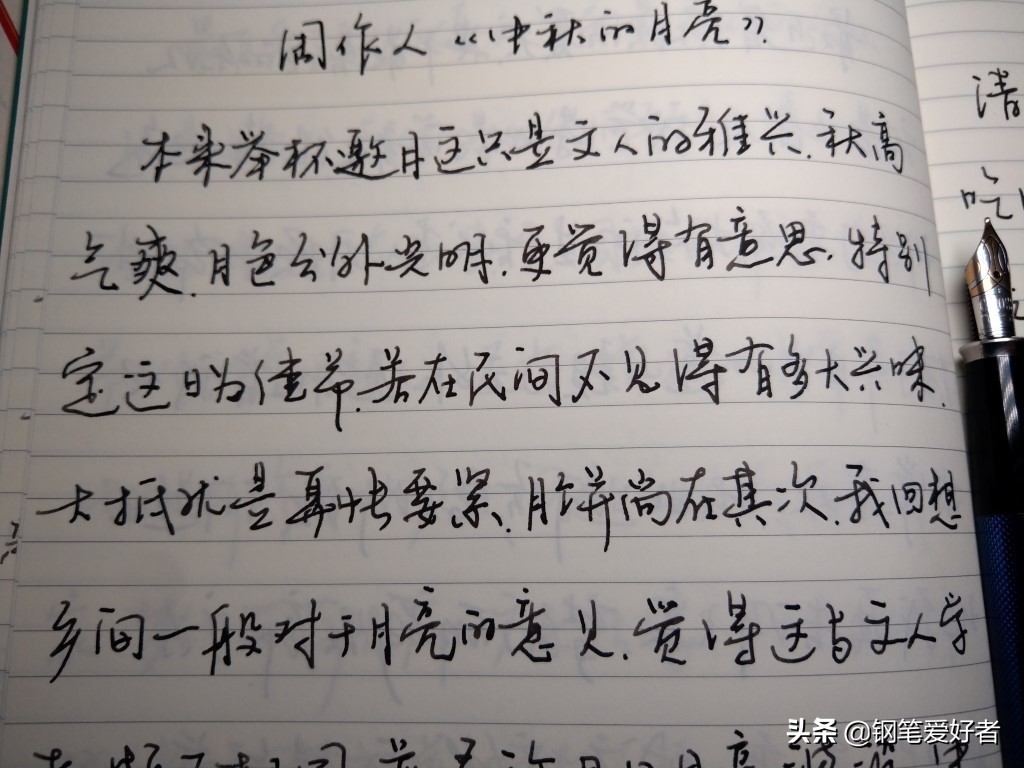 周作人《中秋的月亮》
本来举杯邀月这只是文人的雅兴，秋高
气爽，月色分外光明，更觉得有意思，特别
定这日为佳节，若在民间不见得有多大兴味，
大抵就是算帐要紧，月饼尚在其次，我回想
乡间一般对于月亮的意见，觉得这与文人学
清
吃
头条 @钢笔爱好者